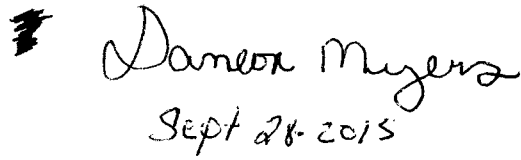 Dameon Myers
Sept 28-2015